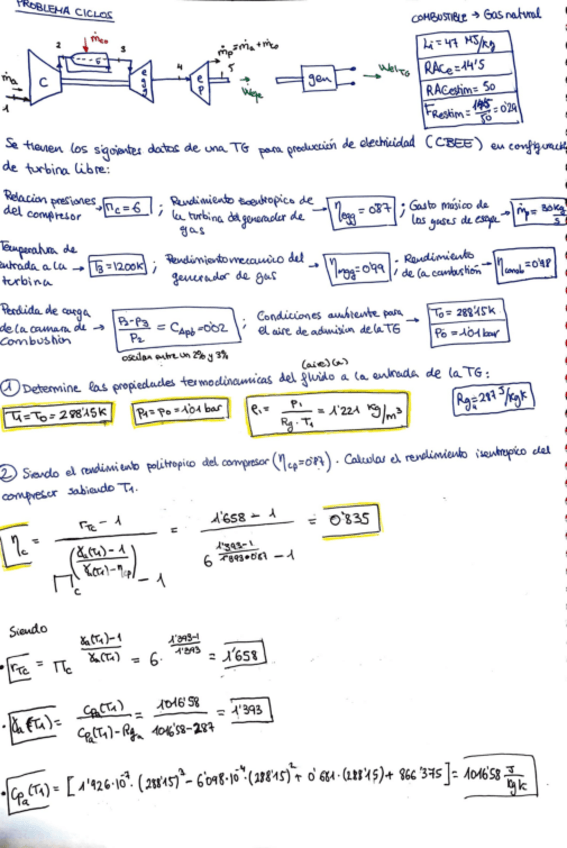 PROBLEMA CICLOS
COMBUSTIBLE → Gas natural
Li = 47 MJ/kg
RACe = 14'5
RACestim = 50
FRestim = 14'5/50 = 0'29
ṁco
ṁp = ṁa + ṁco
ṁa
1 2 3 4 5
C
egg
ep
gen
Se tienen los siguientes datos de una TG para producción de electricidad (CBEE) en configuración
de turbina libre:
Relacion presiones del compresor → Πc = 6 ; Rendimiento isoentropico de la turbina del generador de gas → ηegg = 0'87 ; Gasto másico de los gases de escape → ṁp = 30 kg/s
Temperatura de entrada a la turbina → T3 = 1200K ; Rendimiento mecanico del generador de gas → ηmgg = 0'99 ; Rendimiento de la combustión → ηcomb = 0'98
Perdida de carga de la camara de combustión → P2-P3/P2 = CΔpb = 0'02 ; Condiciones ambiente para el aire de admision de la TG → T0 = 288'15K P0 = 1'01 bar
oscilan entre un 2% y 3%
(aire)(a)
① Determine las propiedades termodinamicas del fluido a la entrada de la TG:
T1 = T0 = 288'15K P1 = P0 = 1'01 bar ρ1 = P1/Rg · T1 = 1'221 kg/m³ Rga = 287 J/kgK
② Siendo el rendimiento politropico del compresor (ηcp = 0'87). Calcular el rendimiento isentropico del
compresor sabiendo T1.
ηc = rTc - 1 / Πc^(γa(T1)-1/γa(T1)·ηcp) - 1 = 1'658 - 1 / 6^(1'393-1/1'393·0'87) - 1 = 0'835
Siendo
· rTc = Πc^(γa(T1)-1/γa(T1)) = 6^(1'393-1/1'393) = 1'658
· γa(T1) = Cpa(T1)/Cpa(T1) - Rga = 1016'58/1016'58-287 = 1'393
· Cpa(T1) = [1'926·10⁻⁷·(288'15)³ - 6'098·10⁻⁴·(288'15)² + 0'681·(288'15) + 866'375] = 1016'58 J/kgK